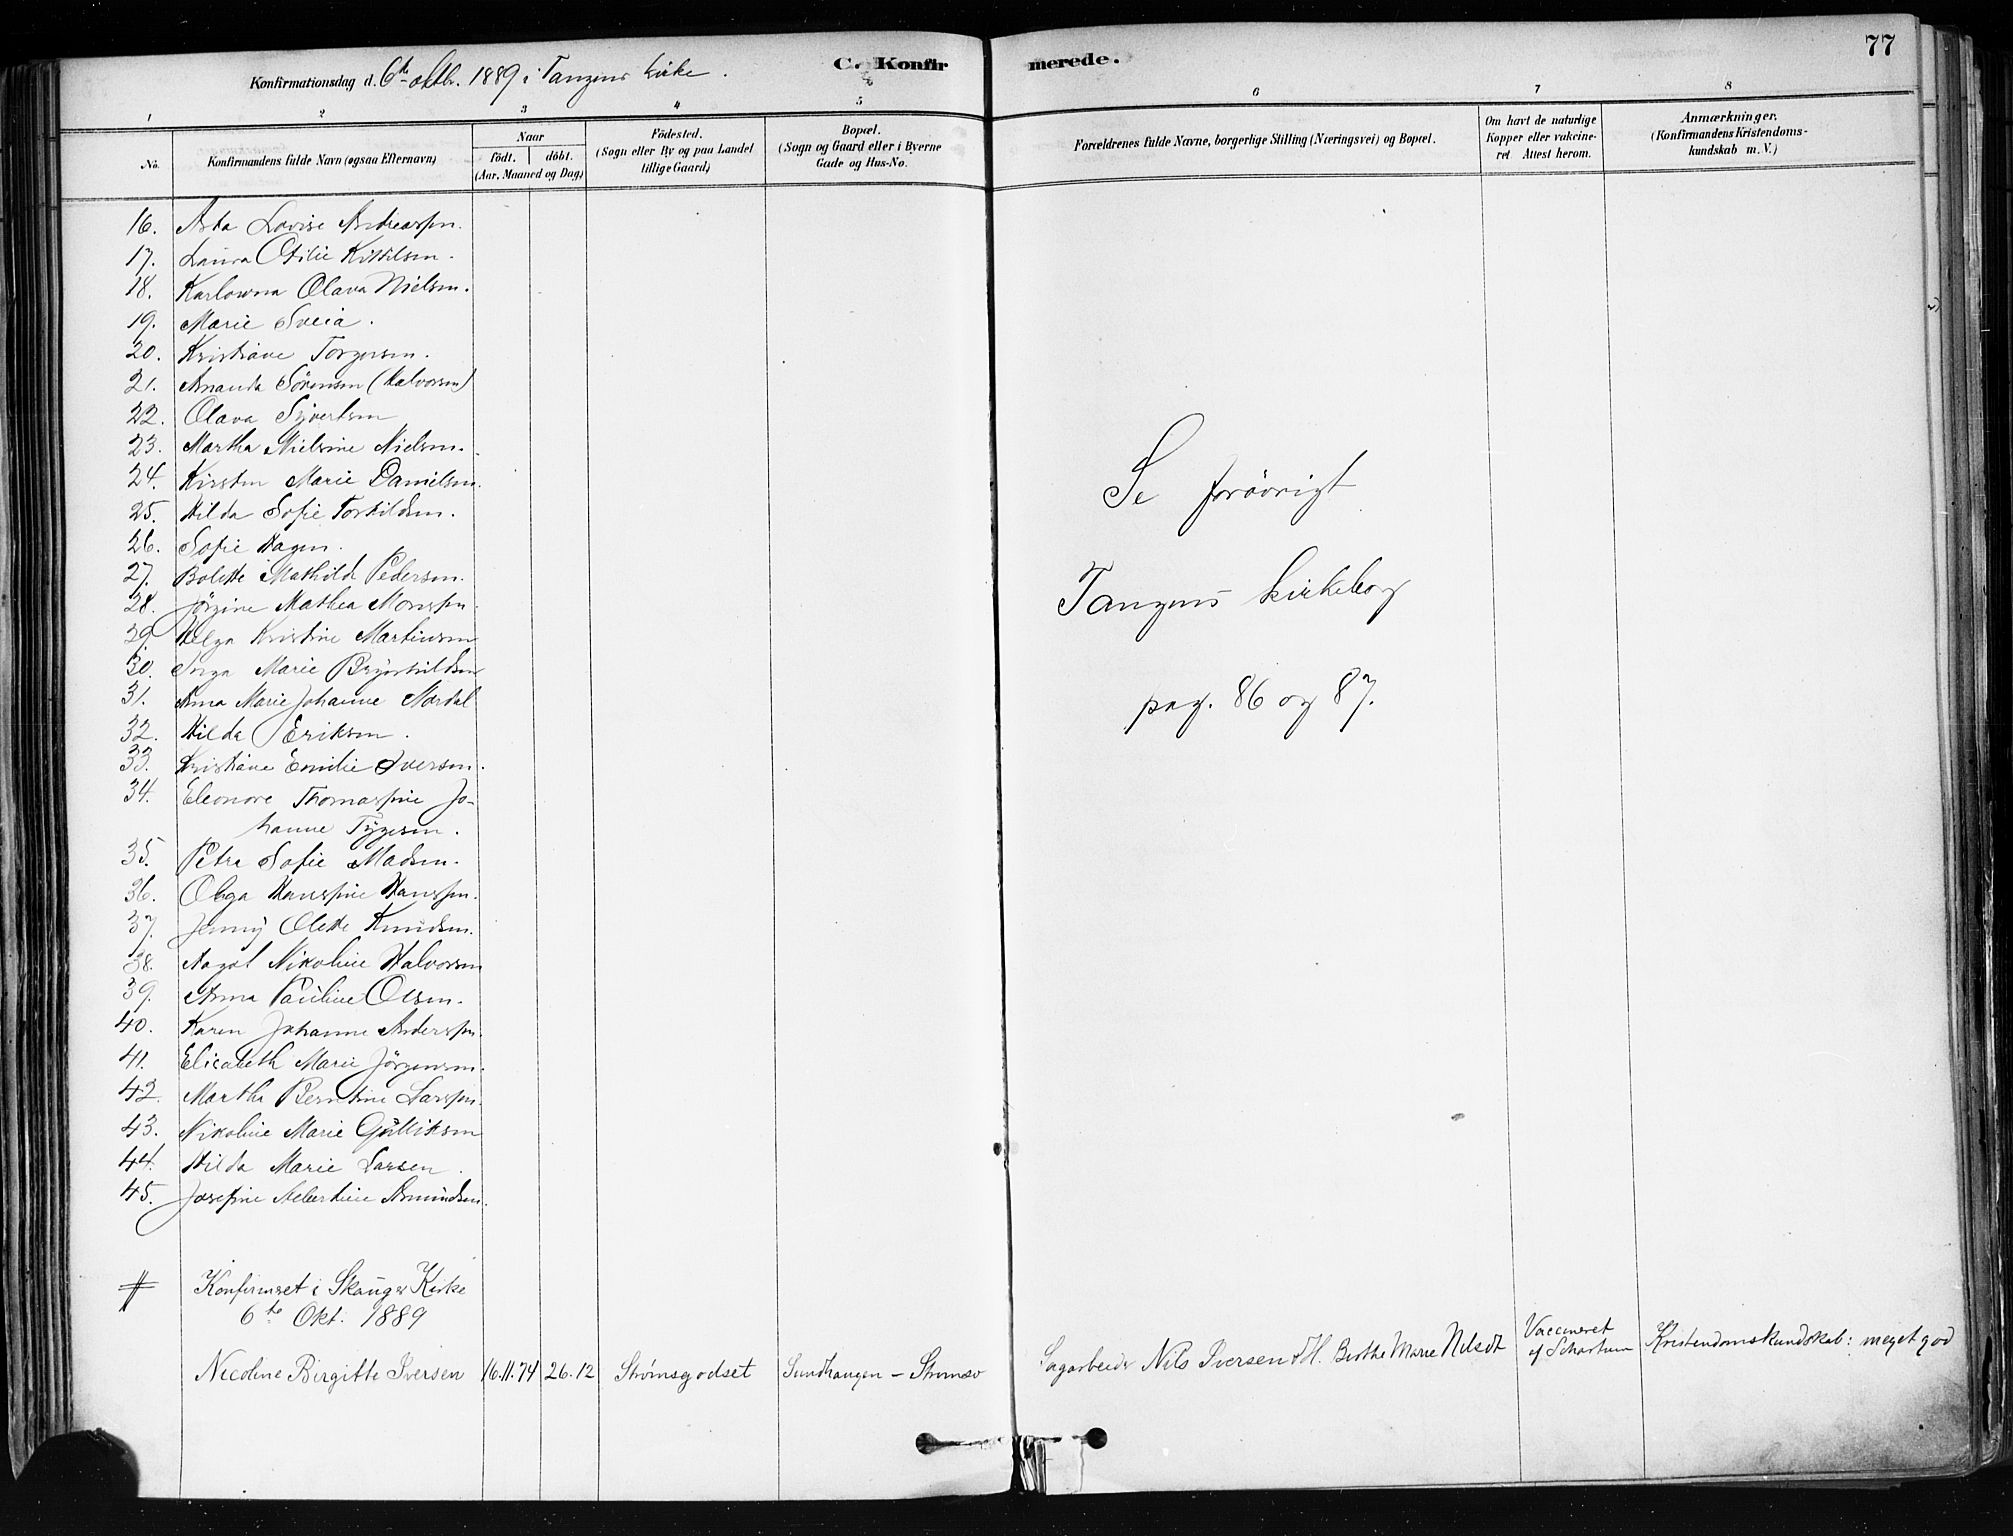 77
Konfirmationsdag d. 6te oktbr. 1889 i Tangens kirke.
C. Konfirmerede.
1 2 3 4 5 6 7 8
No.
Konfirmandens fulde Navn (ogsaa Efternavn)
Naar
født. | döbt.
(Aar, Maaned og Dag)
Födested.
(Sogn eller By og paa Landet
tillige Gaard)
Bopæl.
(Sogn og Gaard eller i Byerne
Gade og Hus-No.
Forældrenes fulde Navne, borgerlige Stilling (Næringsvei) og Bopæl.
Om havt de naturlige
Kopper eller vakcine-
ret Attest herom.
Anmærkninger.
(Konfirmandens Kristendoms-
kundskab m. V.)
16. Asta Lovise Andreassen.
17. Laura Otilie Kittilsen.
18. Karlowna Olava Nielsen.
19. Marie Sveia.
20. Kristiane Torgersen.
21. Amanda Sörensen (Halvorsen)
22. Olava Syvertsen
23. Martha Nielsine Nielsen.
24. Kirsten Marie Danielsen.
25. Hilda Sofie Torkildsen.
26. Sofie Hagen.
27. Bolette Mathild Pedersen.
28. Jörgine Mathea Monssen.
29. Helga Kristine Martinsen
30. Inga Marie Brynhildsen
31. Anna Marie Johanne Mørdal
32. Hilda Eriksen.
33. Kristiane Emilie Iversen.
34. Eleonore Thomassine Jo-
hanne Tygesen.
35. Petra Sofie Madsen.
36. Olga Hanssine Hanssen.
37. Jenny Olette Knudsen.
38. Aagot Nikoline Halvorsen
39. Anna Pauline Olsen.
40. Karen Johanne Anderssen.
41. Elisabeth Marie Jörgensen.
42. Martha Berntine Larssen.
43. Nikoline Marie Gulliksen
44. Hilda Marie Larsen.
45. Josefine Albertine Amundsen.
Se forövrigt
Tangens kirkebog
pag. 86 og 87.
Konfirmeret i Skauger Kirke
6te Okt. 1889
Nicoline Birgitte Iversen 16.11.74 26.12 Strømsgodset Sundhaugen – Strømsø Sagarbeider Nils Iversen & H. Berthe Marie Nilsdt Vaccineret af Schartum Kristendomskundskab: meget god